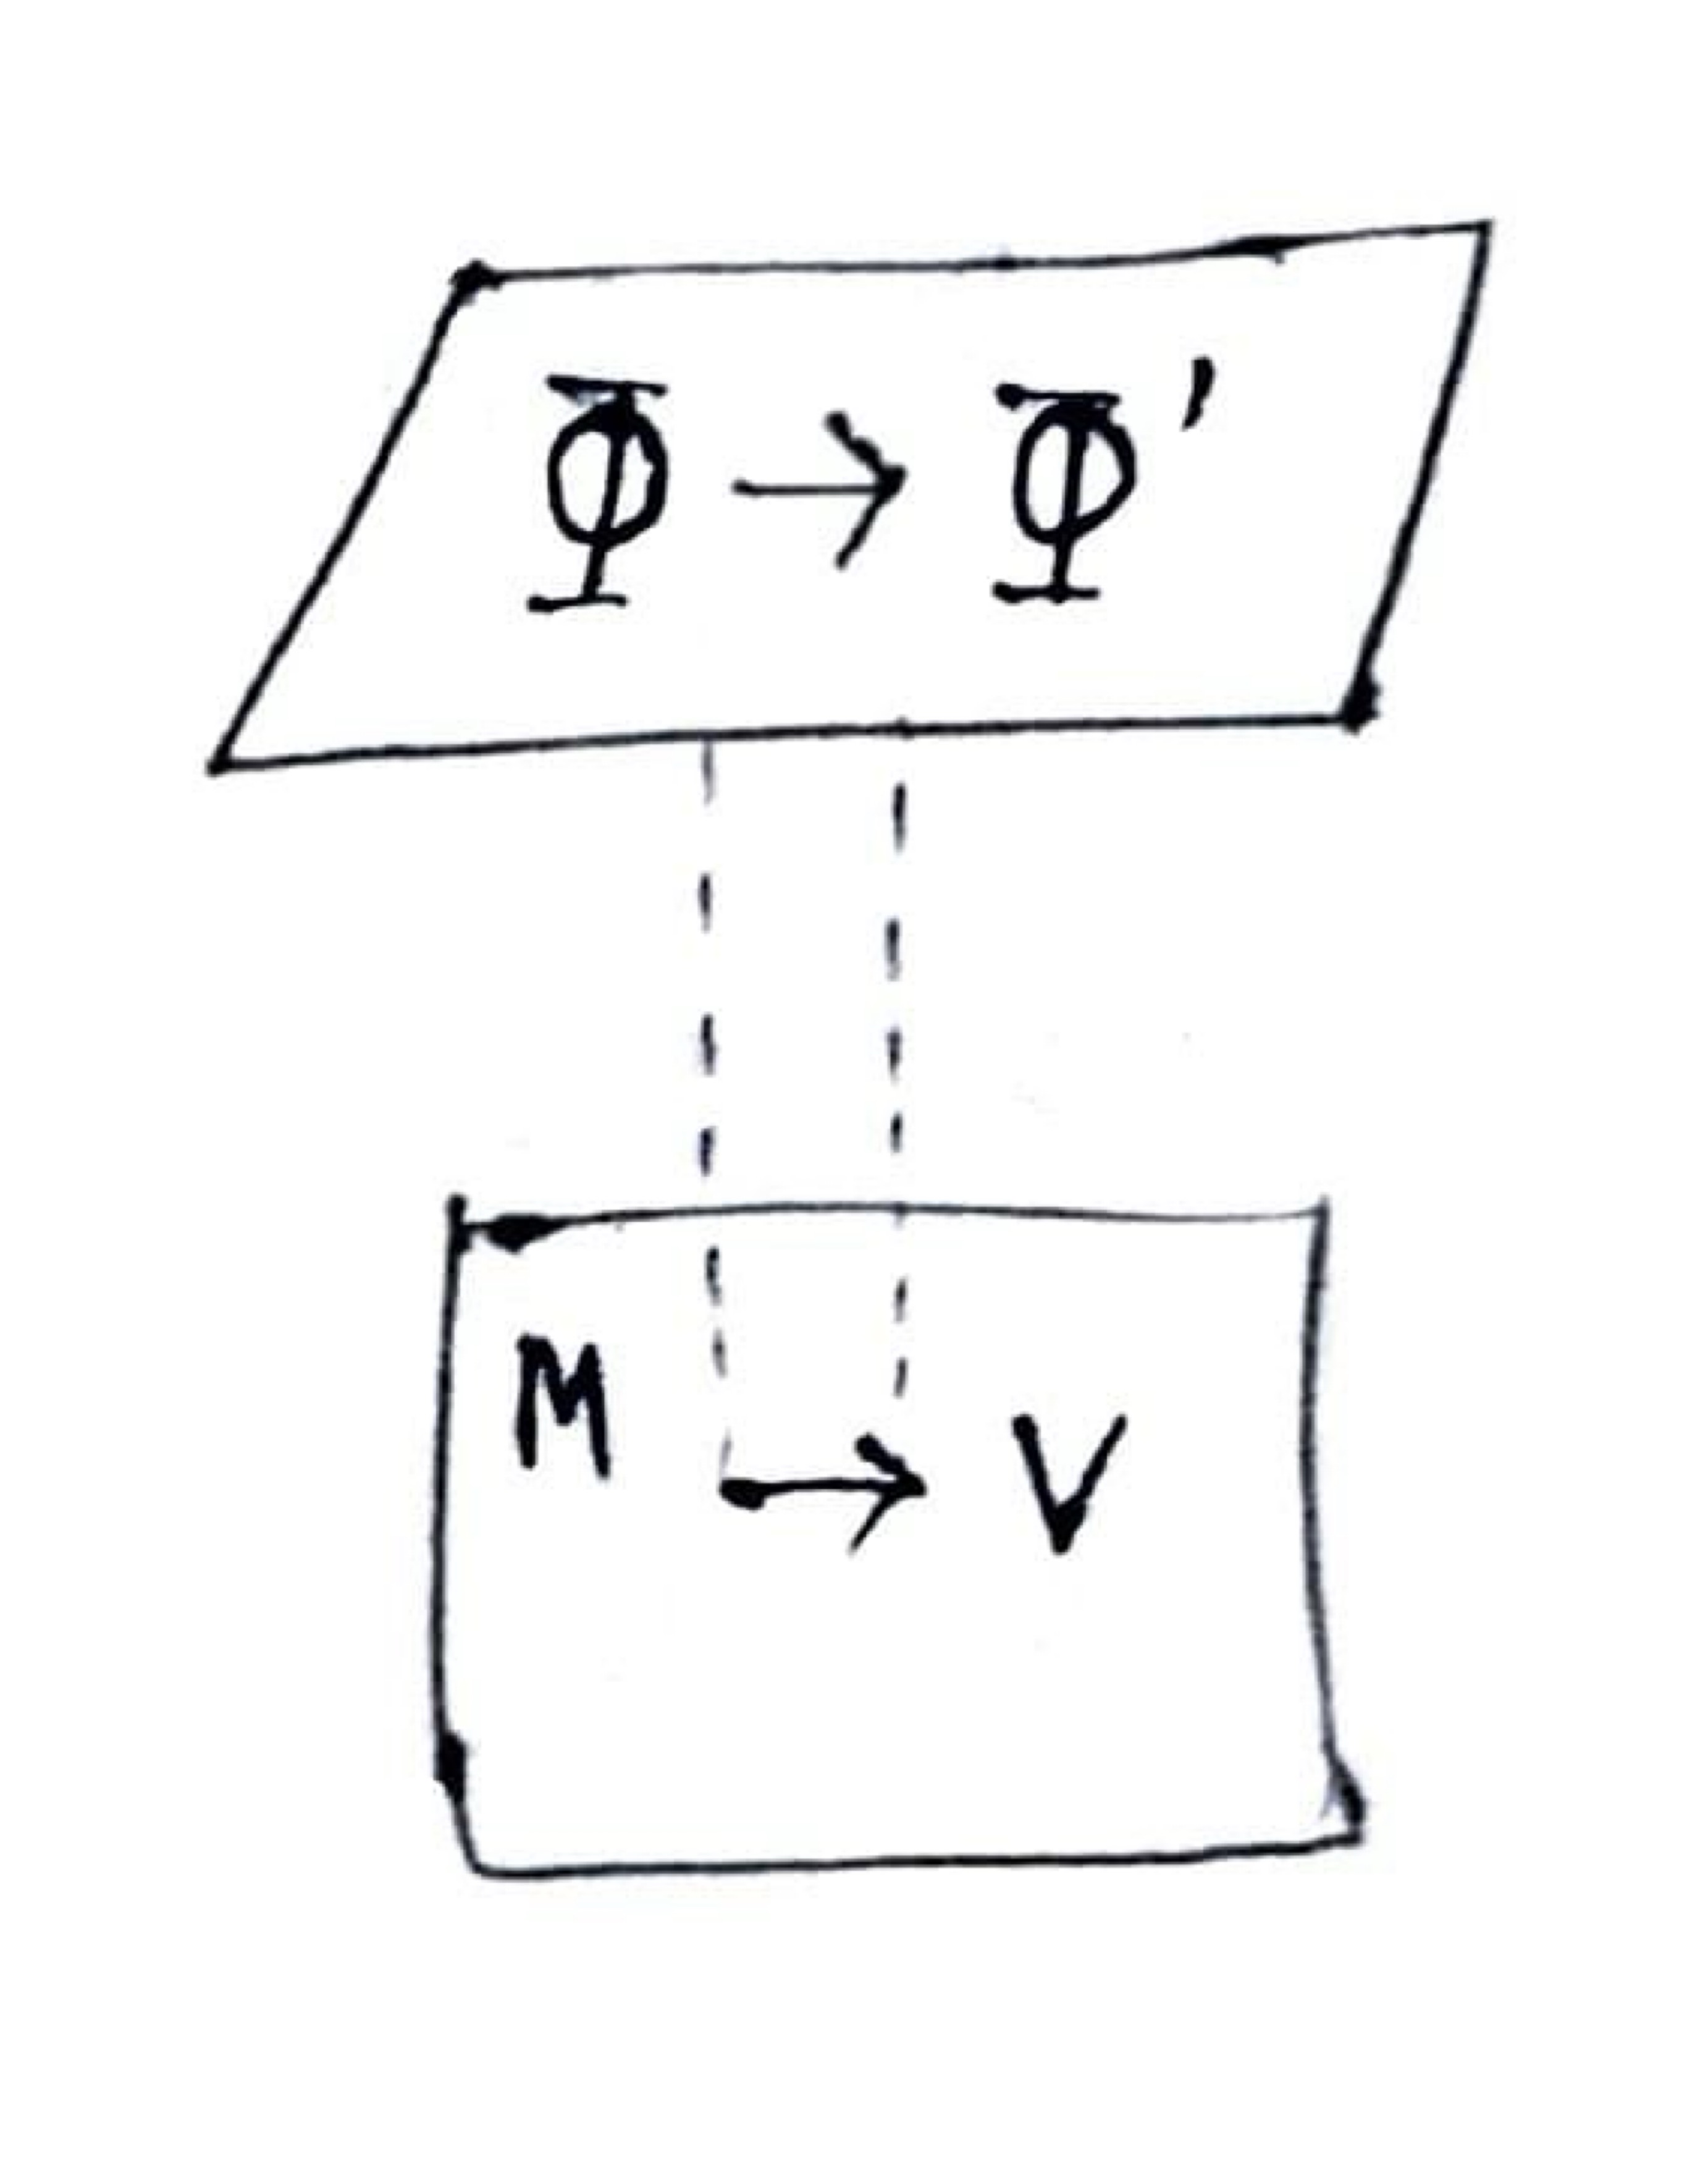 Φ → Φ'
M → V